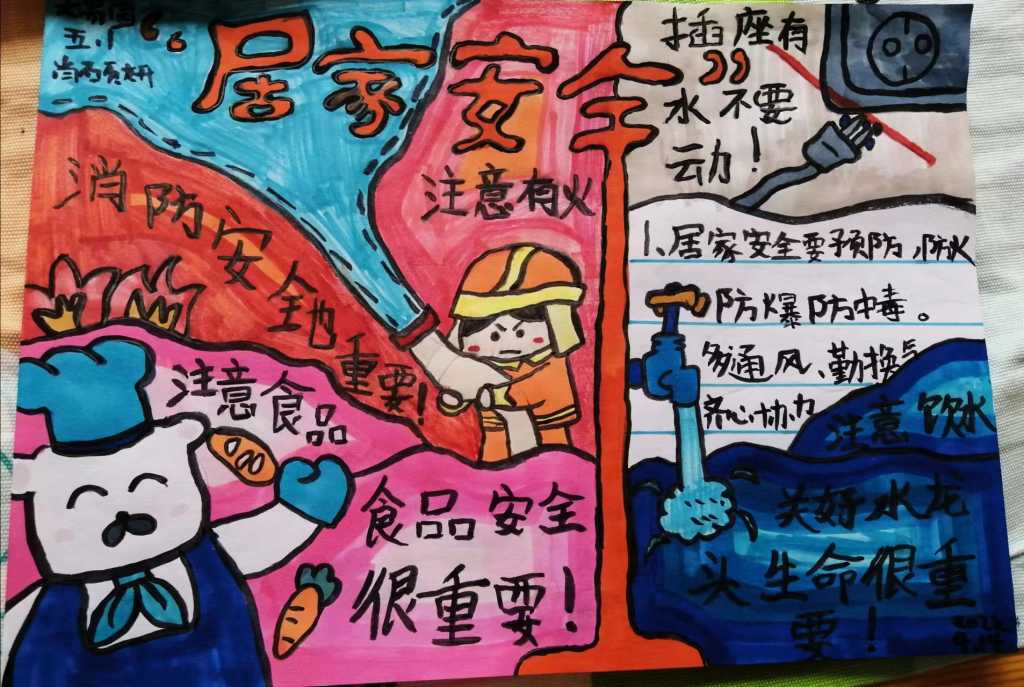 五.1
居家安全
插座有
水不要
动！
消防安全地重要！
注意有火
1、居家安全要预防，防火
防爆防中毒。
多通风、勤换气
齐心协力
注意食品
食品安全
很重要！
注意饮水
关好水龙
头生命很重
要！